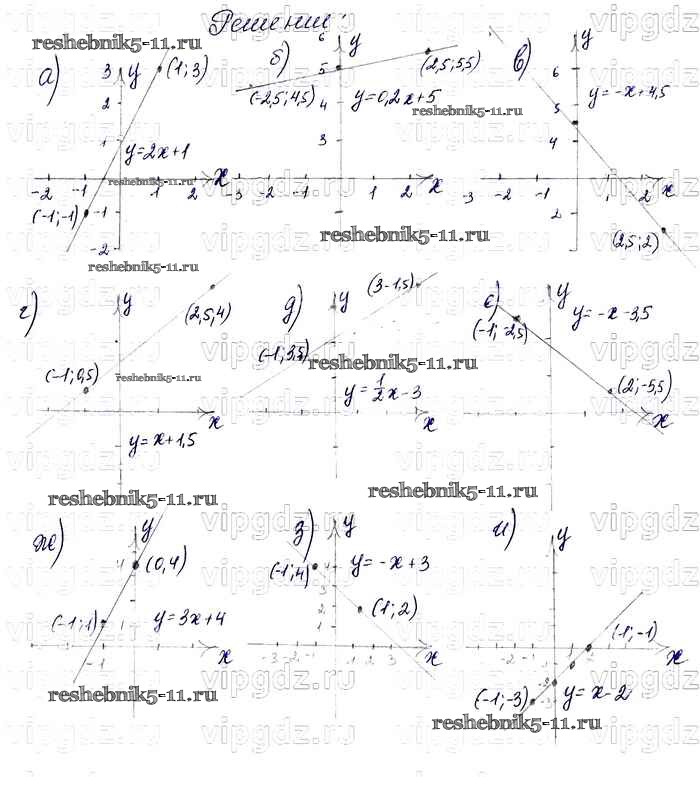 Решение:
а)
y
3
2
1
(1; 3)
y=2x+1
x
-2 -1 1 2
(-1; -1)
-1
-2
б)
y
6
5
4
3
(2,5; 5,5)
(-2,5; 4,5)
y=0,2x+5
x
-3 -2 1 2
в)
y
6
5
4
2
y=-x+4,5
x
-3 -2 -1 2
(2,5; 2)
г)
y
(2,5, 4)
(-1; 0,5)
x
y=x+1,5
д)
y
(3 -1,5)
(-1; 3,5)
y=1/2x-3
x
е)
y
y=-x-3,5
(-1; -2,5)
(2; -5,5)
x
ж)
y
4
(0,4)
(-1; 1)
y=3x+4
x
-1
з)
y
(-1; 4)
4
y=-x+3
3
2
1
(1; 2)
x
-3 -2 -1 1 2 3
и)
y
(-1; -1)
x
-2 -1
(-1; -3)
y=x-2
reshebnik5-11.ru
reshebnik5-11.ru
reshebnik5-11.ru
reshebnik5-11.ru
reshebnik5-11.ru
reshebnik5-11.ru
reshebnik5-11.ru
reshebnik5-11.ru
reshebnik5-11.ru
reshebnik5-11.ru
reshebnik5-11.ru
vipgdz.ru